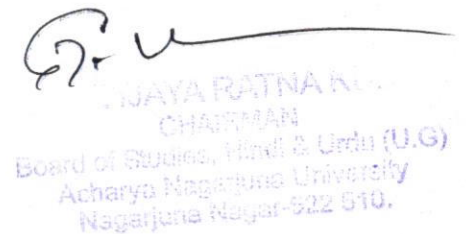 JAYA RATNA
CHAIRMAN
Board of Studies, Hindi & Urdu (U.G)
Acharya Nagarjuna University
Nagarjuna Nagar-522 510.